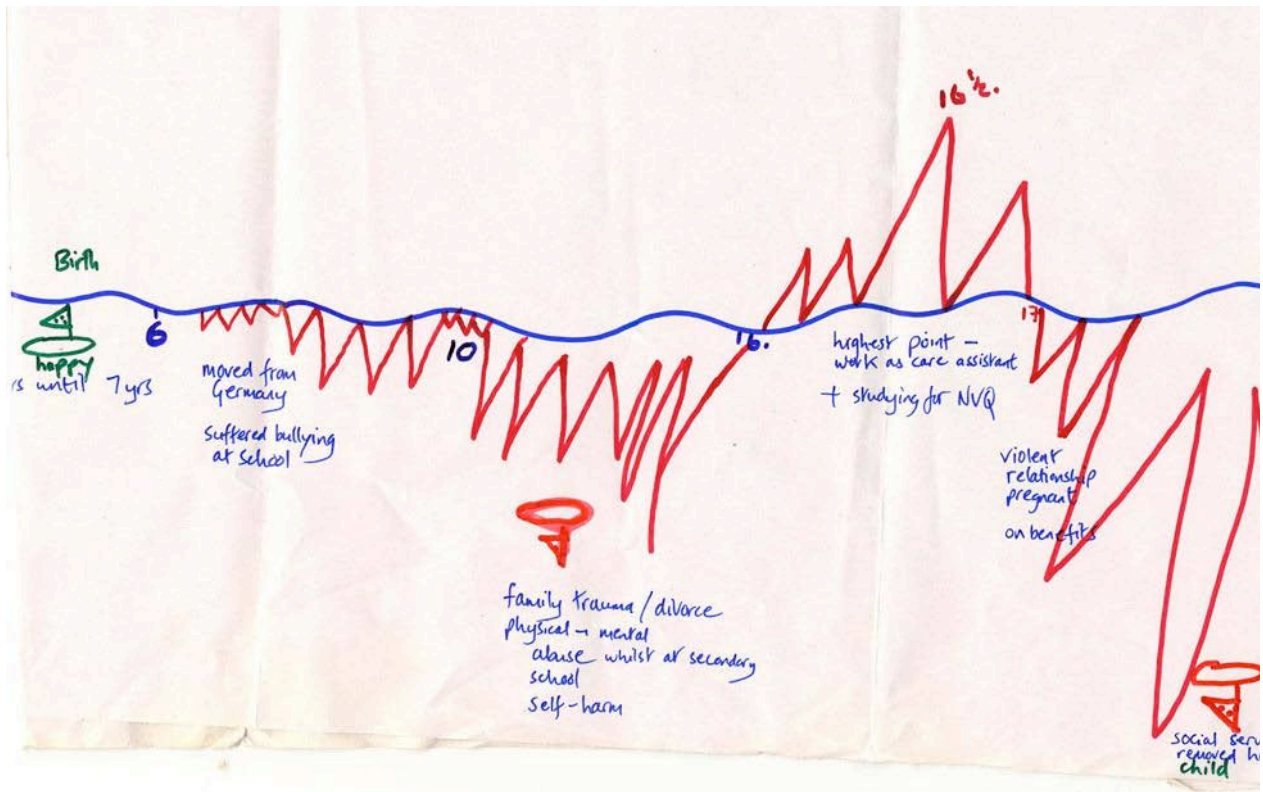 Birth
6
happy
rs until 7yrs
moved from
Germany
suffered bullying
at school
10
family trauma / divorce
physical - mental
abuse whilst at secondary
school
self-harm
16.
16 ½.
highest point -
work as care assistant
+ studying for NVQ
17
violent
relationship
pregnant
on benefits
social serv
removed h
child